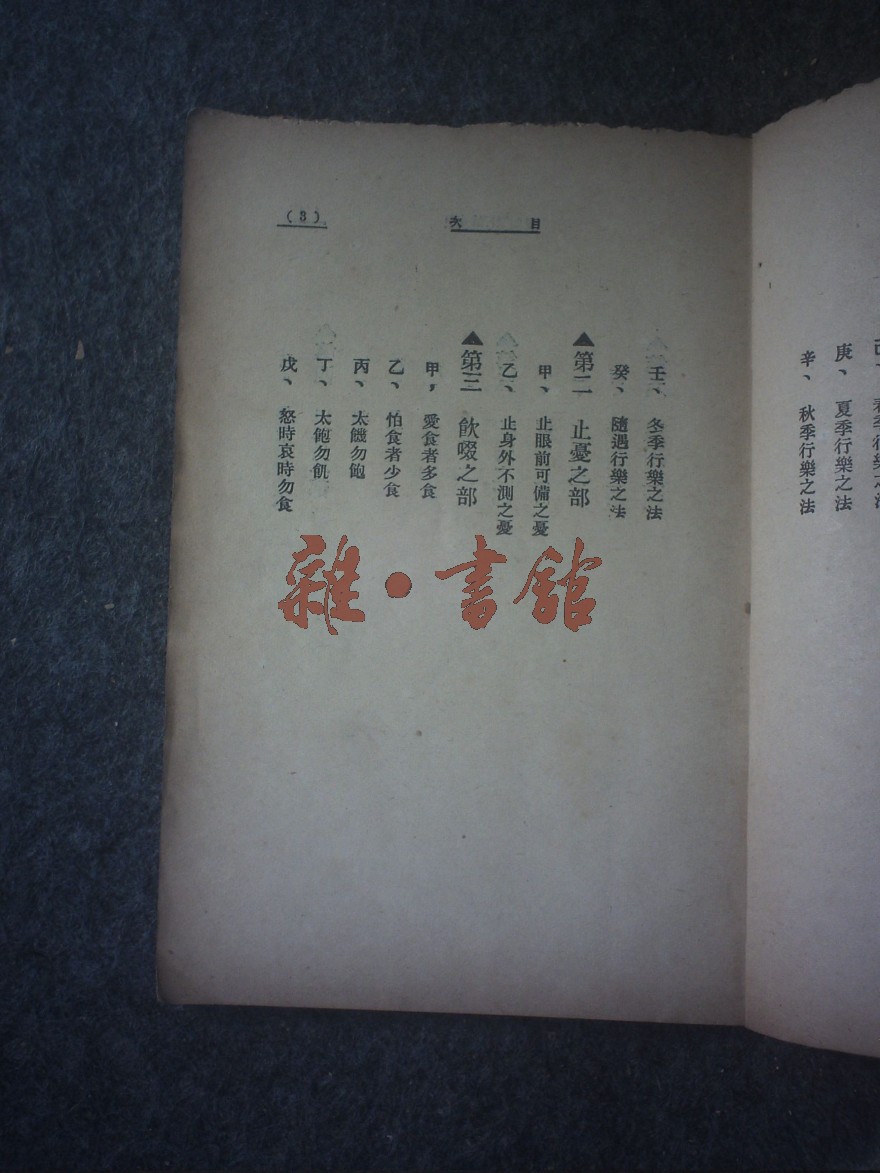 庚、夏季行樂之法
辛、秋季行樂之法
目次
(3)
壬、冬季行樂之法
癸、隨遇行樂之法
▲第二 止憂之部
甲、止眼前可備之憂
乙、止身外不測之憂
▲第三 飲啜之部
甲，愛食者多食
乙、怕食者少食
丙、太饑勿飽
丁、太飽勿飢
戊、怒時哀時勿食
雜·書館